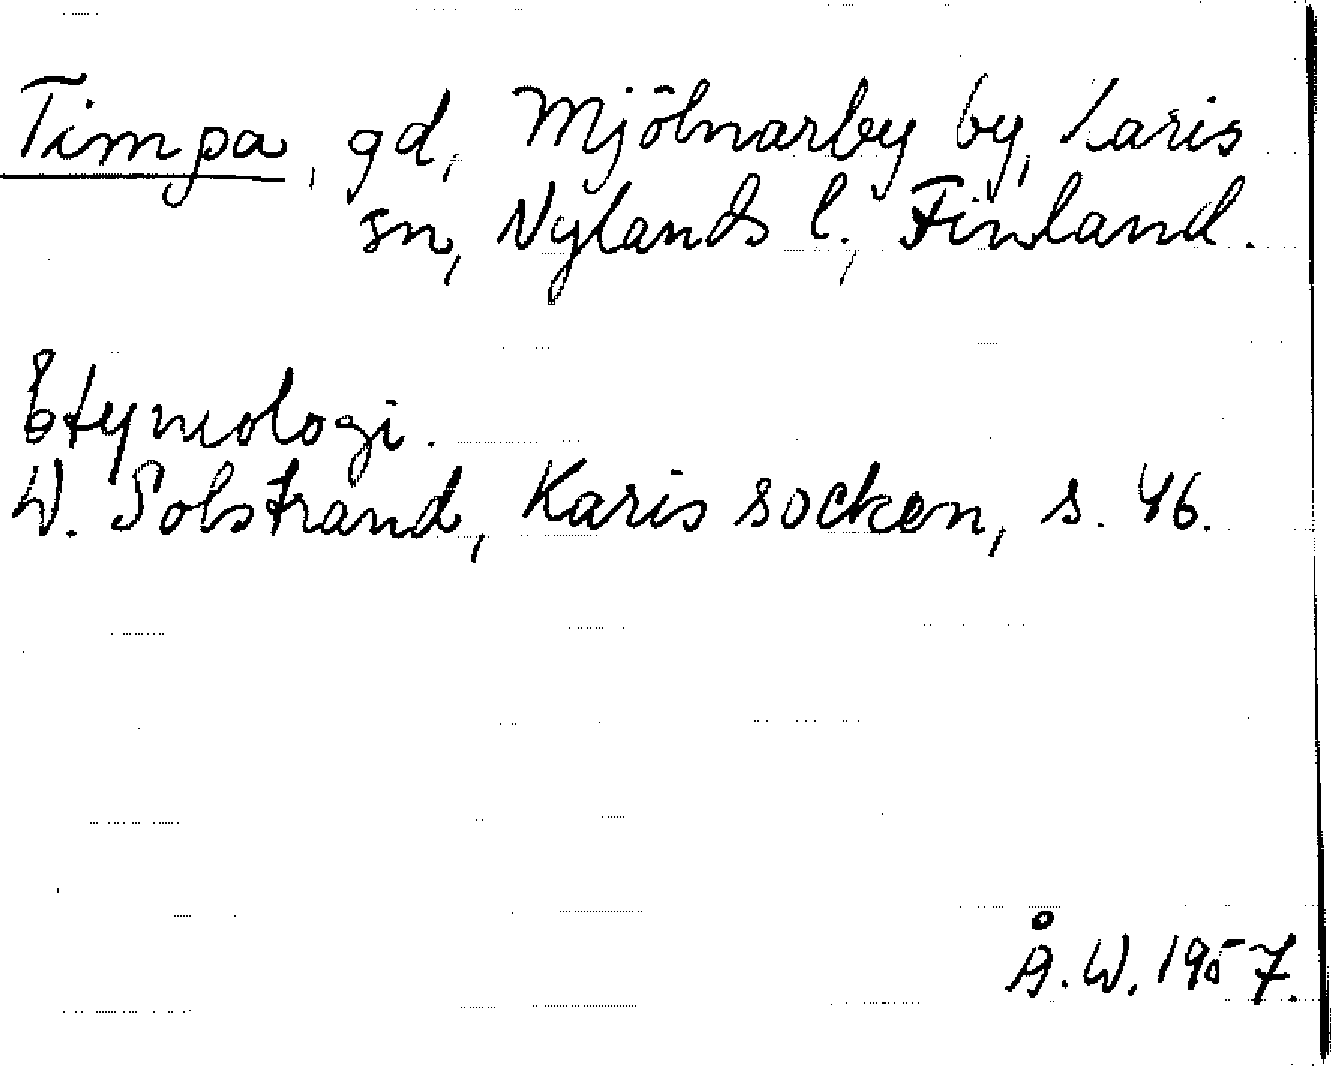 Timpa, gd, Mjölnarby by, Karis
sn, Nylands l., Finland.
Etymologi.
W. Solstrand, Karis socken, s. 46.
Å. W. 1957.